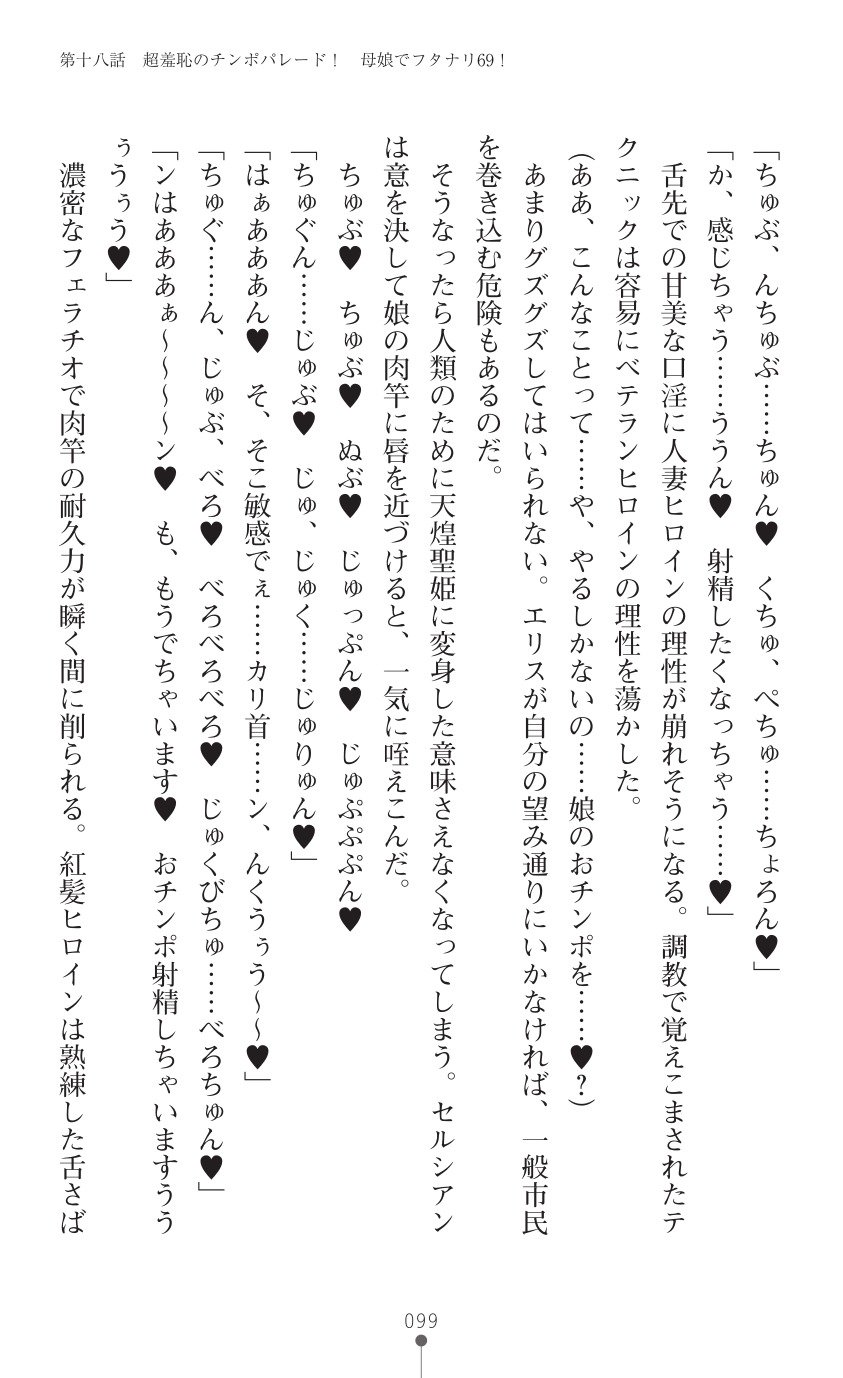 第十八話　超羞恥のチンポパレード！　母娘でフタナリ69！
「ちゅぶ、んちゅぶ……ちゅん♥　くちゅ、ぺちゅ……ちょろん♥」
「か、感じちゃう……ううん♥　射精したくなっちゃう……♥」
　舌先での甘美な口淫に人妻ヒロインの理性が崩れそうになる。調教で覚えこまされたテ
クニックは容易にベテランヒロインの理性を蕩かした。
（ああ、こんなことって……や、やるしかないの……娘のおチンポを……♥？）
　あまりグズグズしてはいられない。エリスが自分の望み通りにいかなければ、一般市民
を巻き込む危険もあるのだ。
　そうなったら人類のために天煌聖姫に変身した意味さえなくなってしまう。セルシアン
は意を決して娘の肉竿に唇を近づけると、一気に咥えこんだ。
　ちゅぶ♥　ちゅぶ♥　ぬぶ♥　じゅっぷん♥　じゅぷぷぷん♥
「ちゅぐん……じゅぶ♥　じゅ、じゅく……じゅりゅん♥」
「はぁあああん♥　そ、そこ敏感でぇ……カリ首……ン、んくうぅう～～♥」
「ちゅぐ……ん、じゅぶ、べろ♥　べろべろべろ♥　じゅくびちゅ……べろちゅん♥」
「ンはあああぁ～～～～ン♥　も、もうでちゃいます♥　おチンポ射精しちゃいますうう
ぅうぅう♥」
　濃密なフェラチオで肉竿の耐久力が瞬く間に削られる。紅髪ヒロインは熟練した舌さば
099